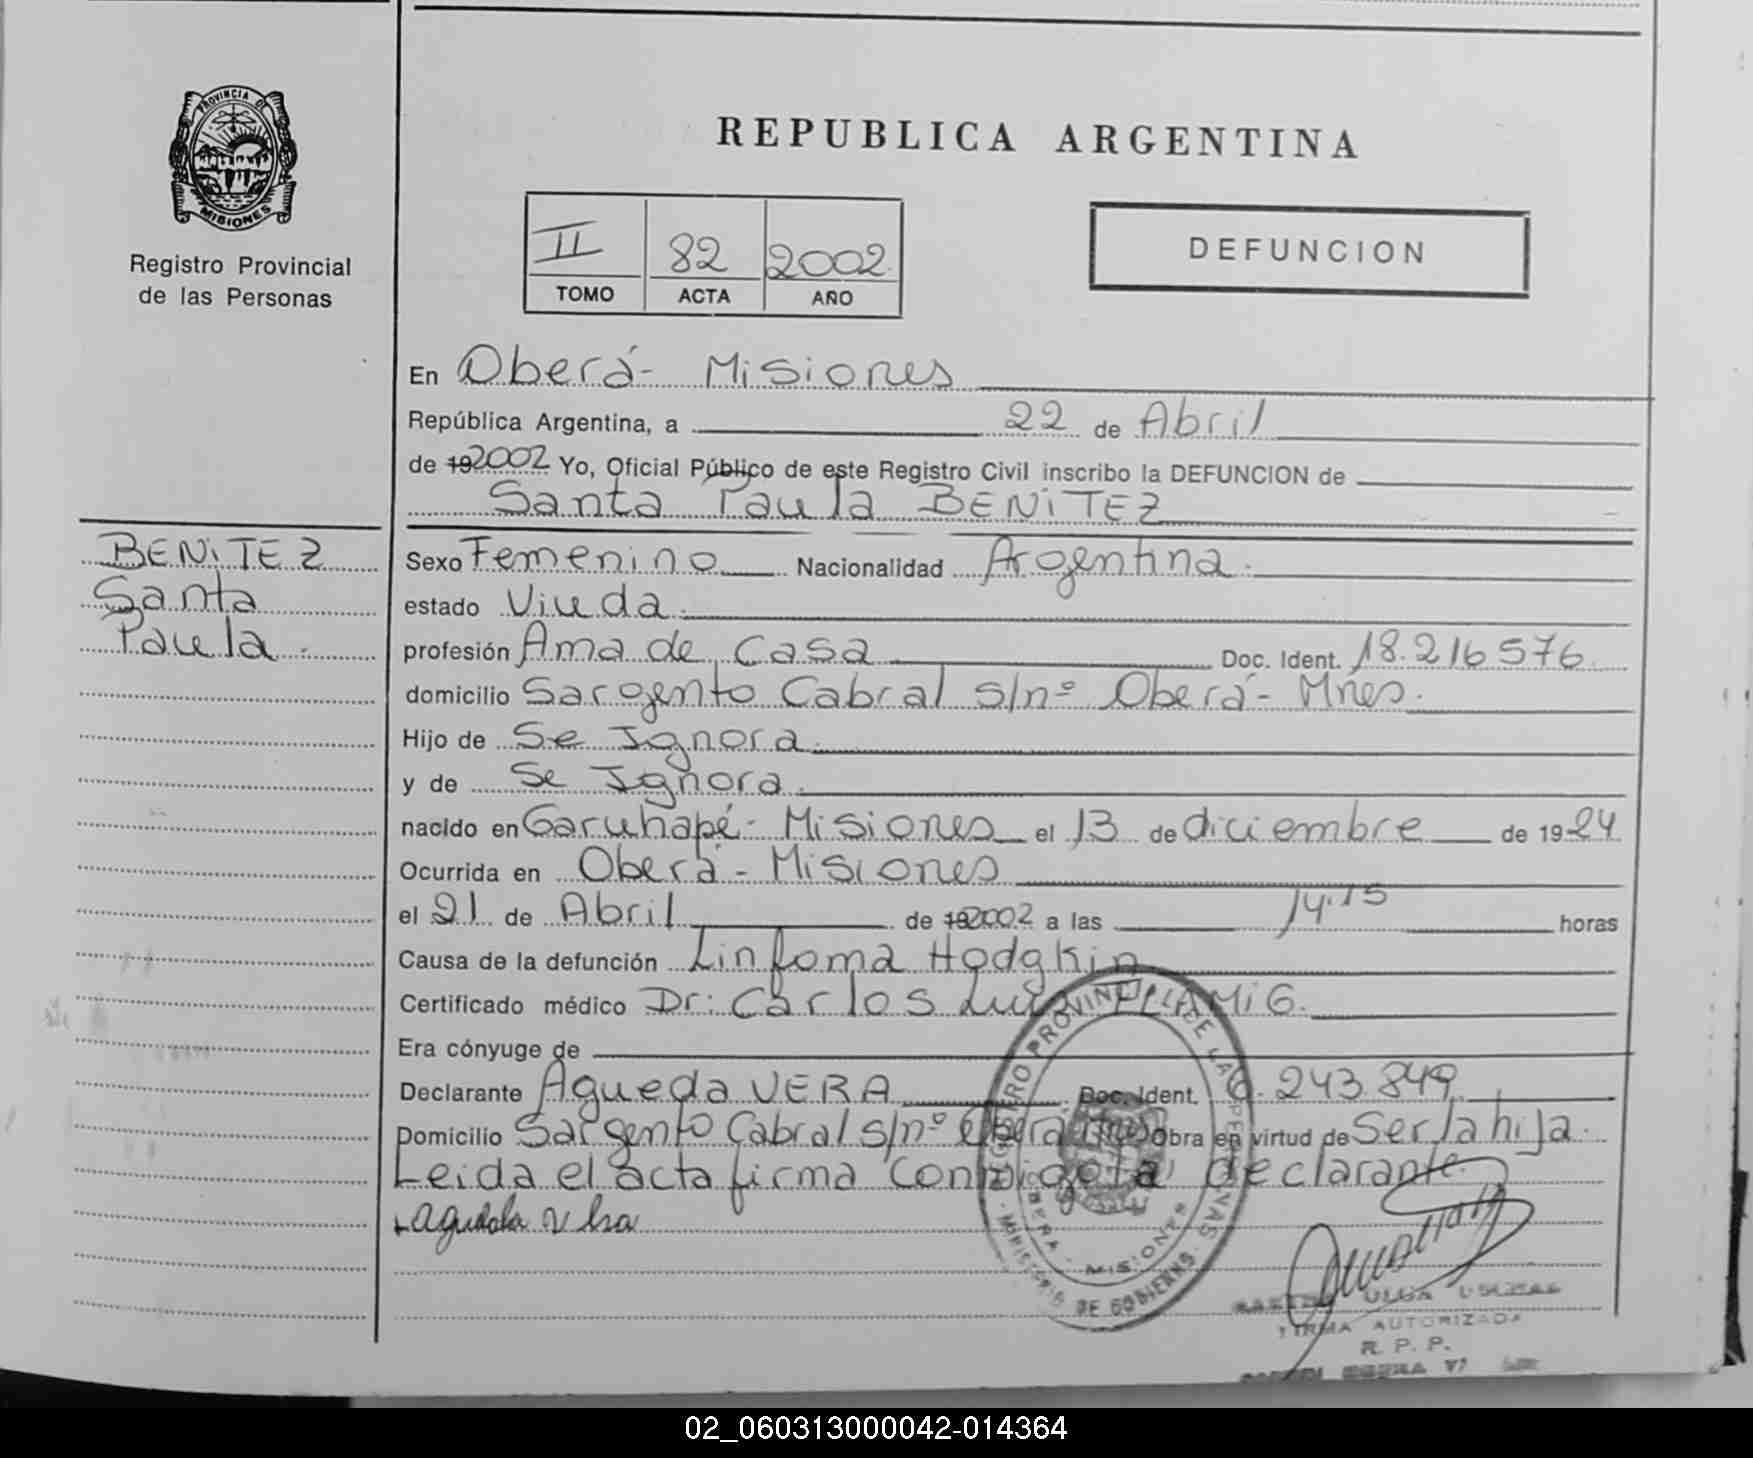 REPUBLICA ARGENTINA
PROVINCIA DE
MISIONES
Registro Provincial
de las Personas
II 82 2002
TOMO ACTA AÑO
DEFUNCION
En Oberá - Misiones
República Argentina, a 22 de Abril
de 192002 Yo, Oficial Público de este Registro Civil inscribo la DEFUNCION de
Santa Paula BENITEZ
BENITEZ
Santa
Paula.
Sexo Femenino Nacionalidad Argentina.
estado Viuda.
profesión Ama de Casa Doc. Ident. 18.216576
domicilio Sargento Cabral s/nº Oberá - Mnes.
Hijo de Se Ignora.
y de Se Ignora.
nacido en Garuhapé - Misiones el 13 de diciembre de 1924
Ocurrida en Oberá - Misiones
el 21 de Abril de 192002 a las 14.15 horas
Causa de la defunción Linfoma Hodgkin
Certificado médico Dr: Carlos Luis FLAMIG.
Era cónyuge de
Declarante Agueda VERA Doc. Ident. 243.849
Domicilio Sargento Cabral s/nº Oberá Mnes Obra en virtud de Ser la hija.
Leida el acta firma conmigo la declarante.
REGISTRO PROVINCIAL DE LAS PERSONAS
OBERA - MISIONES
MINISTERIO DE GOBIERNO
OLGA
FIRMA AUTORIZADA
R. P. P.
02_060313000042-014364